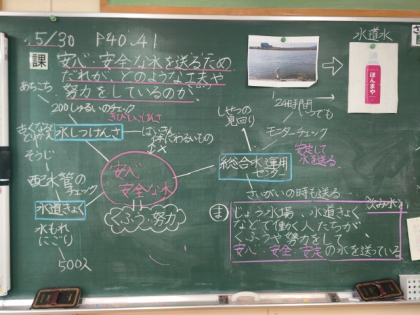 5/30 P40.41
課
安心・安全な水を送るため
だれが、どのような工夫や
努力をしているのか。
水道水
ほんまや
あちこち
200しゅるいのチェック
きびしいけんさ
水しつけんさ
はいきん
体にわるいもの
そうじ
配水管の
チェック
水道きょく
水もれ
にごり
500人
安心
安全な水
くふう・努力
しせつの
見回り
24時間
いつでも
モニターチェック
総合水運用
センター
安定して
水を送る
さいがいの時も送る
ま
飲み水
じょう水場、水道きょく
などで働く人たちが
くふうや努力をして
安心・安全・安定の水を送っている